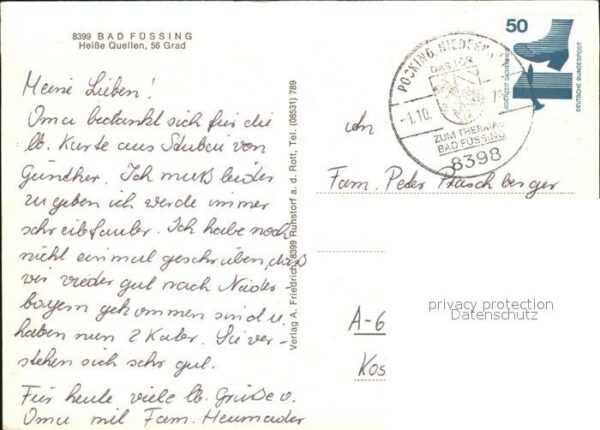 8399 BAD FÜSSING
Heiße Quellen, 56 Grad
Meine Lieben!
Oma bedankt sich für die
lb. Karte aus Stuben von
Günther. Ich muß leider
zugeben ich werde immer
schreibfauler. Ich habe noch
nicht einmal geschrieben, daß
wir wieder gut nach Nieder
bayern gekommen sind u.
haben nun 2 Kater. Sie ver-
stehen sich sehr gut.
Für heute viele lb. Grüße v.
Oma mit Fam. Heumader
Verlag A. Friedrich, 8399 Ruhstorf a. d. Rott, Tel. (08531) 789
POCKING, NIEDERB
DAS TOR
-1.10.
ZUM THERMAL
BAD FÜSSING
8398
50
JEDERZEIT SICHERHEIT
DEUTSCHE BUNDESPOST
An
Fam. Peter Praschberger
privacy protection
Datenschutz
A-6
Kos